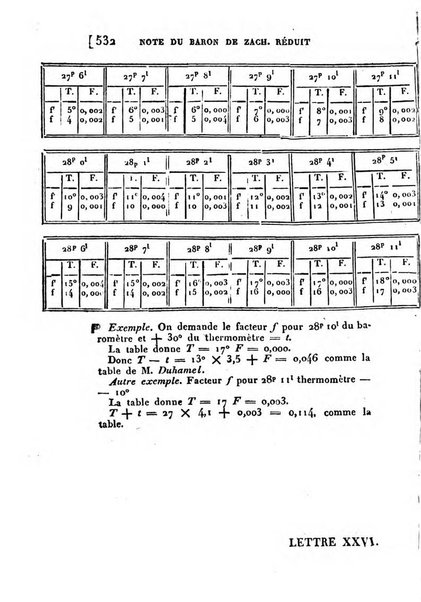 [532 NOTE DU BARON DE ZACH. RÉDUIT
27ᵖ 6ˡ 27ᵖ 7ˡ 27ᵖ 8ˡ 27ᵖ 9ˡ 27ᵖ 10ˡ 27ᵖ 11ˡ
T. F. T. F. T. F. T. F. T. F. T. F.
f 5° 0,002 f 6° 0,003 f 6° 0,000 f 7° 0,002 f 8° 0,001 f 8° 0,001
f 4 0,002 f 5 0,001 f 5 0,004 f 6 0,003 f 7 0,003 f 7 0,003
28ᵖ 0ˡ 28ᵖ 1ˡ 28ᵖ 2ˡ 28ᵖ 3ˡ 28ᵖ 4ˡ 28ᵖ 5ˡ
T. F. T. F. T. F. T. F. T. F. T. F.
f 10° 0,003 f 11° 0,004 f 11° 0,000 f 12° 0,002 f 13° 0,002 f 14° 0,003
f 9 0,001 f 10 0,000 f 10 0,004 f 11 0,002 f 12 0,001 f 13 0,001
28ᵖ 6ˡ 28ᵖ 7ˡ 28ᵖ 8ˡ 28ᵖ 9ˡ 28ᵖ 10ˡ 28ᵖ 11ˡ
T. F. T. F. T. F. T. F. T. F. T. F.
f 15° 0,004 f 15° 0,000 f 16° 0,003 f 17° 0,003 f 17° 0,000 f 18° 0,001
f 14 0,000 f 14 0,004 f 15 0,003 f 16 0,001 f 16 0,004 f 17 0,003
Exemple. On demande le facteur f pour 28ᵖ 10ˡ du ba-
romètre et + 30° du thermomètre = t.
La table donne T = 17° F = 0,000.
Donc T — t = 13° × 3,5 + F = 0,046 comme la
table de M. Duhamel.
Autre exemple. Facteur f pour 28ᵖ 11ˡ thermomètre —
— 10°
La table donne T = 17 F = 0,003.
T + t = 27 × 4,1 + 0,003 = 0,114, comme la
table.
LETTRE XXVI.